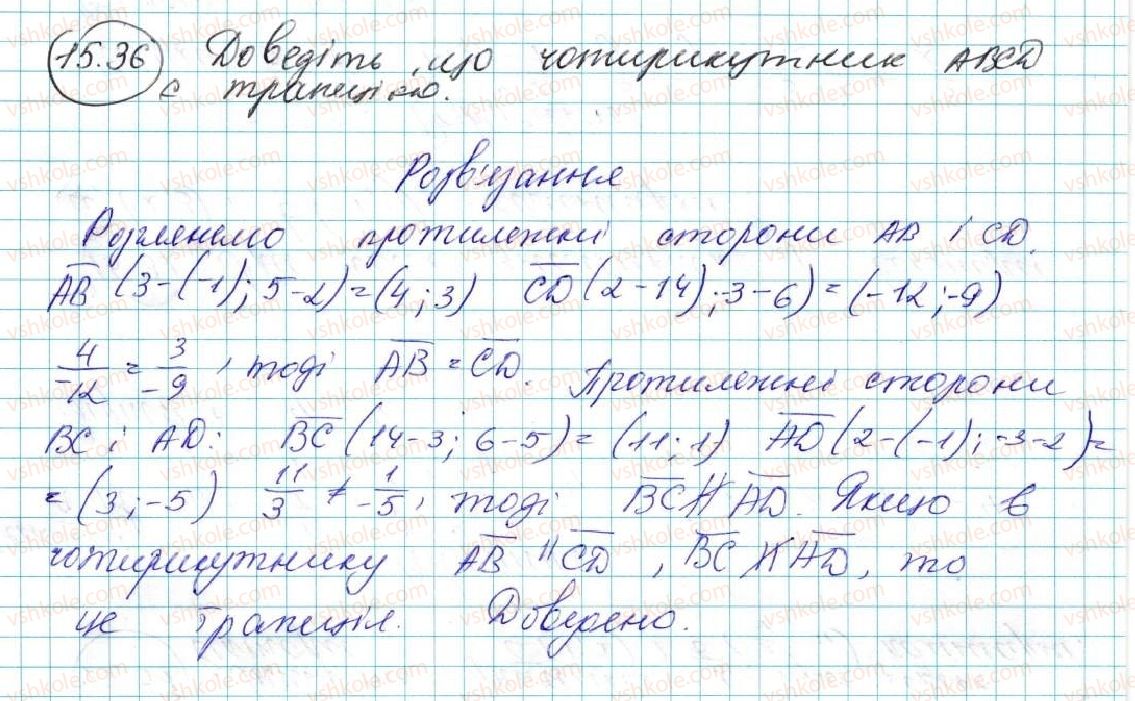 15.36 Доведіть, що чотирикутник ABCD
є трапецією.
Розв'язання
Розглянемо протилежні сторони AB і CD.
AB (3-(-1); 5-2)=(4;3) CD (2-14); -3-6)=(-12;-9)
4/-12 = 3/-9, тоді AB = CD. Протилежні сторони
BC і AD: BC (14-3; 6-5)=(11;1) AD (2-(-1); -3-2)=
=(3;-5) 11/3 ≠ -1/5, тоді BC ∦ AD. Якщо в
чотирикутнику AB || CD, BC ∦ AD, то
це трапеція. Доведено.